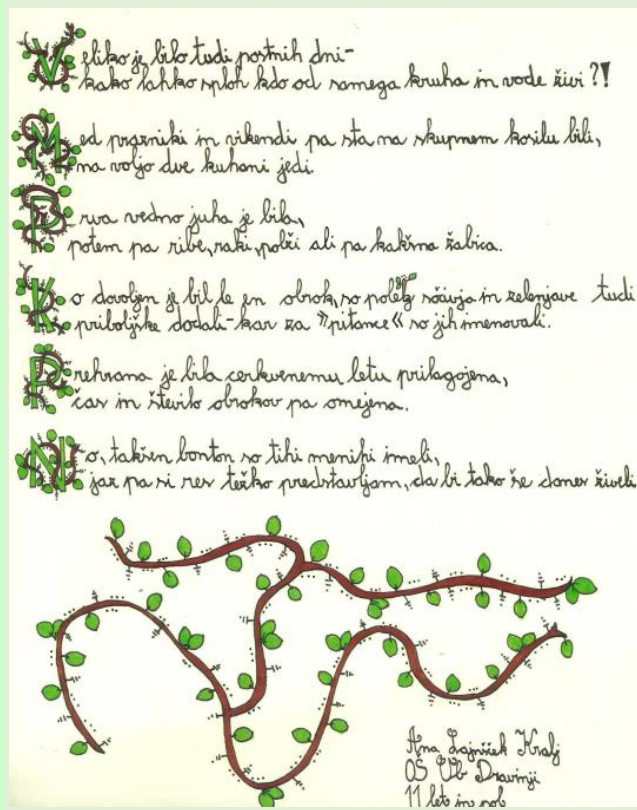 Veliko je bilo tudi postnih dni-
kako lahko sploh kdo od samega kruha in vode živi?!
Med prazniki in vikendi pa sta na skupnem kosilu bili,
na voljo dve kuhani jedi.
Prva vedno juha je bila,
potem pa ribe, raki, polži ali pa kakšna žabica.
Ko dovoljen je bil le en obrok, so poleg sočivja in zelenjave tudi
priboljške dodali-kar za »pitance« so jih menovali.
Prehrana je bila cerkvenemu letu prilagojena,
čas in število obrokov pa omejena.
No, takšen bonton so tihi menihi imeli,
jaz pa si res težko predstavljam, da bi tako še danes živeli
Ana Lajnšček Kralj
OŠ Ob Dravinji
11 let in pol